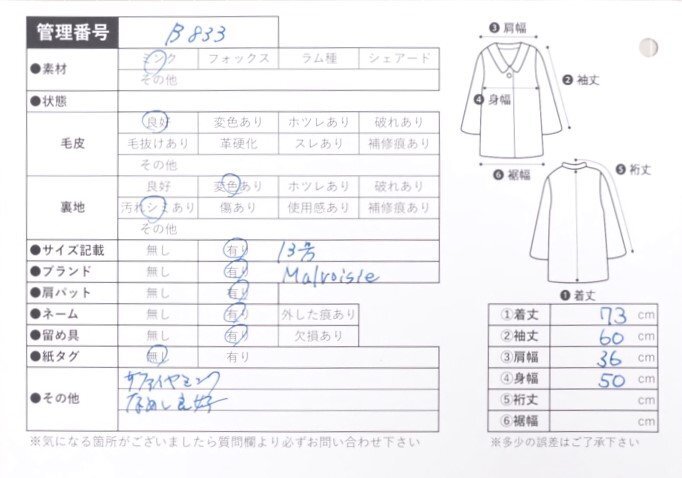 管理番号 B833
●素材 ミンク フォックス ラム種 シェアード
その他
●状態
毛皮 良好 変色あり ホツレあり 破れあり
毛抜けあり 革硬化 スレあり 補修痕あり
その他
裏地 良好 変色あり ホツレあり 破れあり
汚れシミあり 傷あり 使用感あり 補修痕あり
その他
●サイズ記載 無し 有り 13号
●ブランド 無し 有り Malvoisie
●肩パット 無し 有り
●ネーム 無し 有り 外した痕あり
●留め具 無し 有り 欠損あり
●紙タグ 無し 有り
●その他 サファイヤミンク
なめし良好
※気になる箇所がございましたら質問欄より必ずお問い合わせ下さい
❸肩幅
❷袖丈
❹身幅
❻裾幅
❺裄丈
❶着丈
①着丈 73 cm
②袖丈 60 cm
③肩幅 36 cm
④身幅 50 cm
⑤裄丈 cm
⑥裾幅 cm
※多少の誤差はご了承下さい